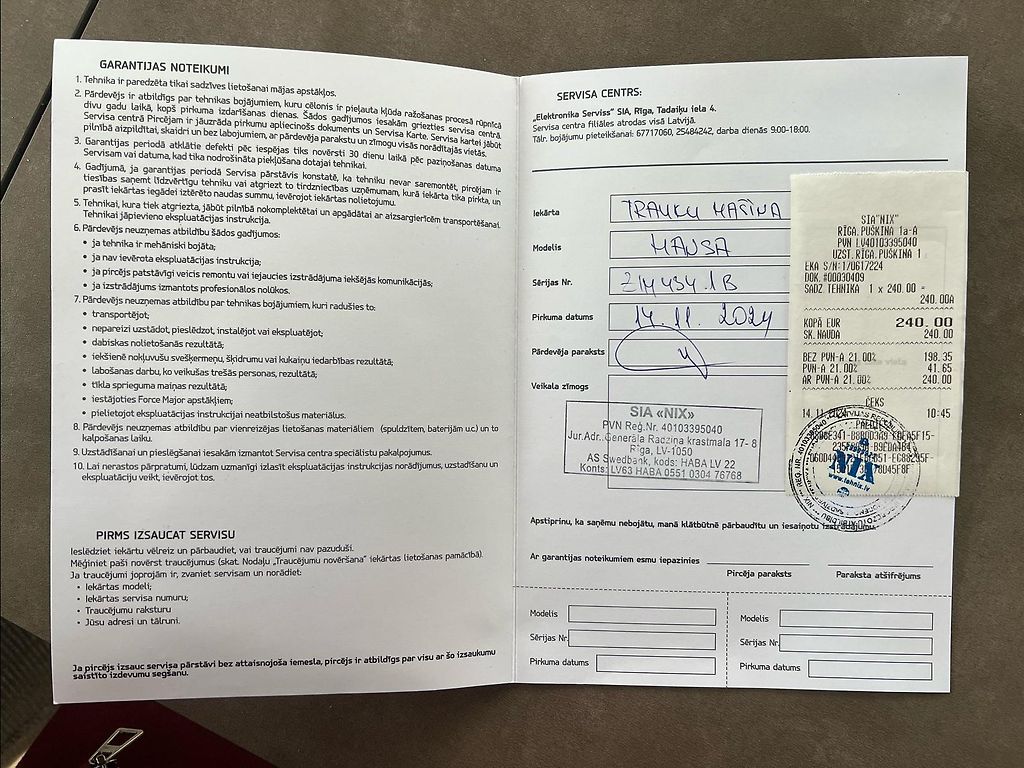 GARANTIJAS NOTEIKUMI
1. Tehnika ir paredzēta tikai sadzīves lietošanai mājas apstākļos.
2. Pārdevējs ir atbildīgs par tehnikas bojājumiem, kuru cēlonis ir pieļauta kļūda ražošanas procesā rūpnīcā
divu gadu laikā, kopš pirkuma izdarīšanas dienas. Šādos gadījumos iesakām griezties servisa centrā.
Servisa centrā Pircējam ir jāuzrāda pirkumu apliecinošs dokuments un Servisa Karte. Servisa kartei jābūt
pilnībā aizpildītai, skaidri un bez labojumiem, ar pārdevēja parakstu un zīmogu visās norādītajās vietās.
3. Garantijas periodā atklātie defekti pēc iespējas tiks novērsti 30 dienu laikā pēc paziņošanas datuma
Servisam vai datuma, kad tika nodrošināta piekļūšana dotajai tehnikai.
4. Gadījumā, ja garantijas periodā Servisa pārstāvis konstatē, ka tehniku nevar saremontēt, pircējam ir
tiesības saņemt līdzvērtīgu tehniku vai atgriezt to tirdzniecības uzņēmumam, kurā iekārta tika pirkta, un
prasīt iekārtas iegādei iztērēto naudas summu, ievērojot nolietojumu.
5. Tehnikai, kura tiek atgriezta, jābūt pilnībā nokomplektētai un apgādātai ar aizsargierīcēm transportēšanai.
Tehnikai jāpievieno ekspluatācijas instrukcija.
6. Pārdevējs neuzņemas atbildību šādos gadījumos:
• ja tehnika ir mehāniski bojāta;
• ja nav ievērota ekspluatācijas instrukcija;
• ja pircējs patstāvīgi veicis remontu vai iejaucies izstrādājuma iekšējās komunikācijās;
• ja izstrādājums izmantots profesionālos nolūkos.
7. Pārdevējs neuzņemas atbildību par tehnikas bojājumiem, kuri radušies to:
• transportējot;
• nepareizi uzstādot, pieslēdzot, instalējot vai ekspluatējot;
• dabiskas nolietošanās rezultātā;
• iekšienē nokļuvušu svešķermeņu, šķidrumu vai kukaiņu iedarbības rezultātā;
• labošanas darbu, ko veikušas trešās personas, rezultātā;
• tīkla sprieguma maiņas rezultātā;
• iestājoties Force Major apstākļiem;
• pielietojot ekspluatācijas instrukcijai neatbilstošus materiālus.
8. Pārdevējs neuzņemas atbildību par vienreizējas lietošanas materiāliem (spuldzītēm, baterijām u.c) un to
kalpošanas laiku.
9. Uzstādīšanai un pieslēgšanai iesakām izmantot Servisa centra speciālistu pakalpojumus.
10. Lai nerastos pārpratumi, lūdzam uzmanīgi izlasīt ekspluatācijas instrukcijas norādījumus, uzstādīšanu un
ekspluatāciju veikt, ievērojot tos.
PIRMS IZSAUCAT SERVISU
Ieslēdziet iekārtu vēlreiz un pārbaudiet, vai traucējumi nav pazuduši.
Mēģiniet paši novērst traucējumus (skat. Nodaļu „Traucējumu novēršana" iekārtas lietošanas pamācībā).
Ja traucējumi joprojām ir, zvaniet servisam un norādiet:
• Iekārtas modeli;
• Iekārtas servisa numuru;
• Traucējumu raksturu
• Jūsu adresi un tālruni.
Ja pircējs izsauc servisa pārstāvi bez attaisnojoša iemesla, pircējs ir atbildīgs par visu ar šo izsaukumu
saistīto izdevumu segšanu.
SERVISA CENTRS:
„Elektronika Serviss" SIA, Rīga, Tadaiķu iela 4.
Servisa centra filiāles atrodas visā Latvijā.
Tālr. bojājumu pieteikšanai: 67717060, 25484242, darba dienās 9.00-18.00.
Iekārta TRAUKU MAŠĪNA
Modelis HANSA
Sērijas Nr. ZIM 434.1B
Pirkuma datums 14.11.2024
Pārdevēja paraksts
Veikala zīmogs
SIA «NIX»
PVN Reģ.Nr. 40103395040
Jur.Adr. Ģenerāļa Radziņa krastmala 17- 8
Rīga, LV-1050
AS Swedbank, kods: HABA LV 22
Konts: LV63 HABA 0551 0304 76768
SIA"NIX"
RĪGA.PUŠKINA 1a-A
PVN LV40103395040
UZST.RĪGA.PUŠKINA 1
EKA S/N:1/0617224
DOK.#00030409
SADZ TEHNIKA 1 x 240.00 =
240.00A
KOPĀ EUR 240.00
SK.NAUDA 240.00
BEZ PVN-A 21.00% 198.35
PVN-A 21.00% 41.65
AR PVN-A 21.00% 240.00
ČEKS
14.11.2024 10:45
NIX
www.tehnix.lv
Apstiprinu, ka saņēmu nebojātu, manā klātbūtnē pārbaudītu un iesaiņotu izstrādājumu.
Ar garantijas noteikumiem esmu iepazinies
Pircēja paraksts Paraksta atšifrējums
Modelis
Sērijas Nr.
Pirkuma datums
Modelis
Sērijas Nr.
Pirkuma datums